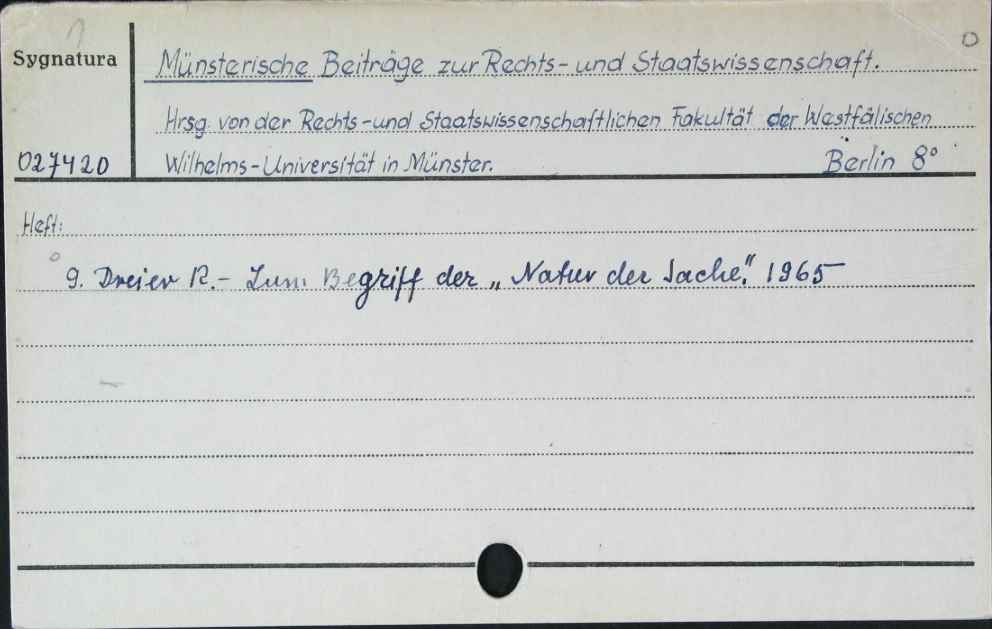 Sygnatura
Münsterische Beiträge zur Rechts- und Staatswissenschaft.
Hrsg. von der Rechts- und Staatswissenschaftlichen Fakultät der Westfälischen
027420
Wilhelms-Universität in Münster. Berlin 8°
Heft:
9. Dreier R. - Zum Begriff der „Natur der Sache". 1965